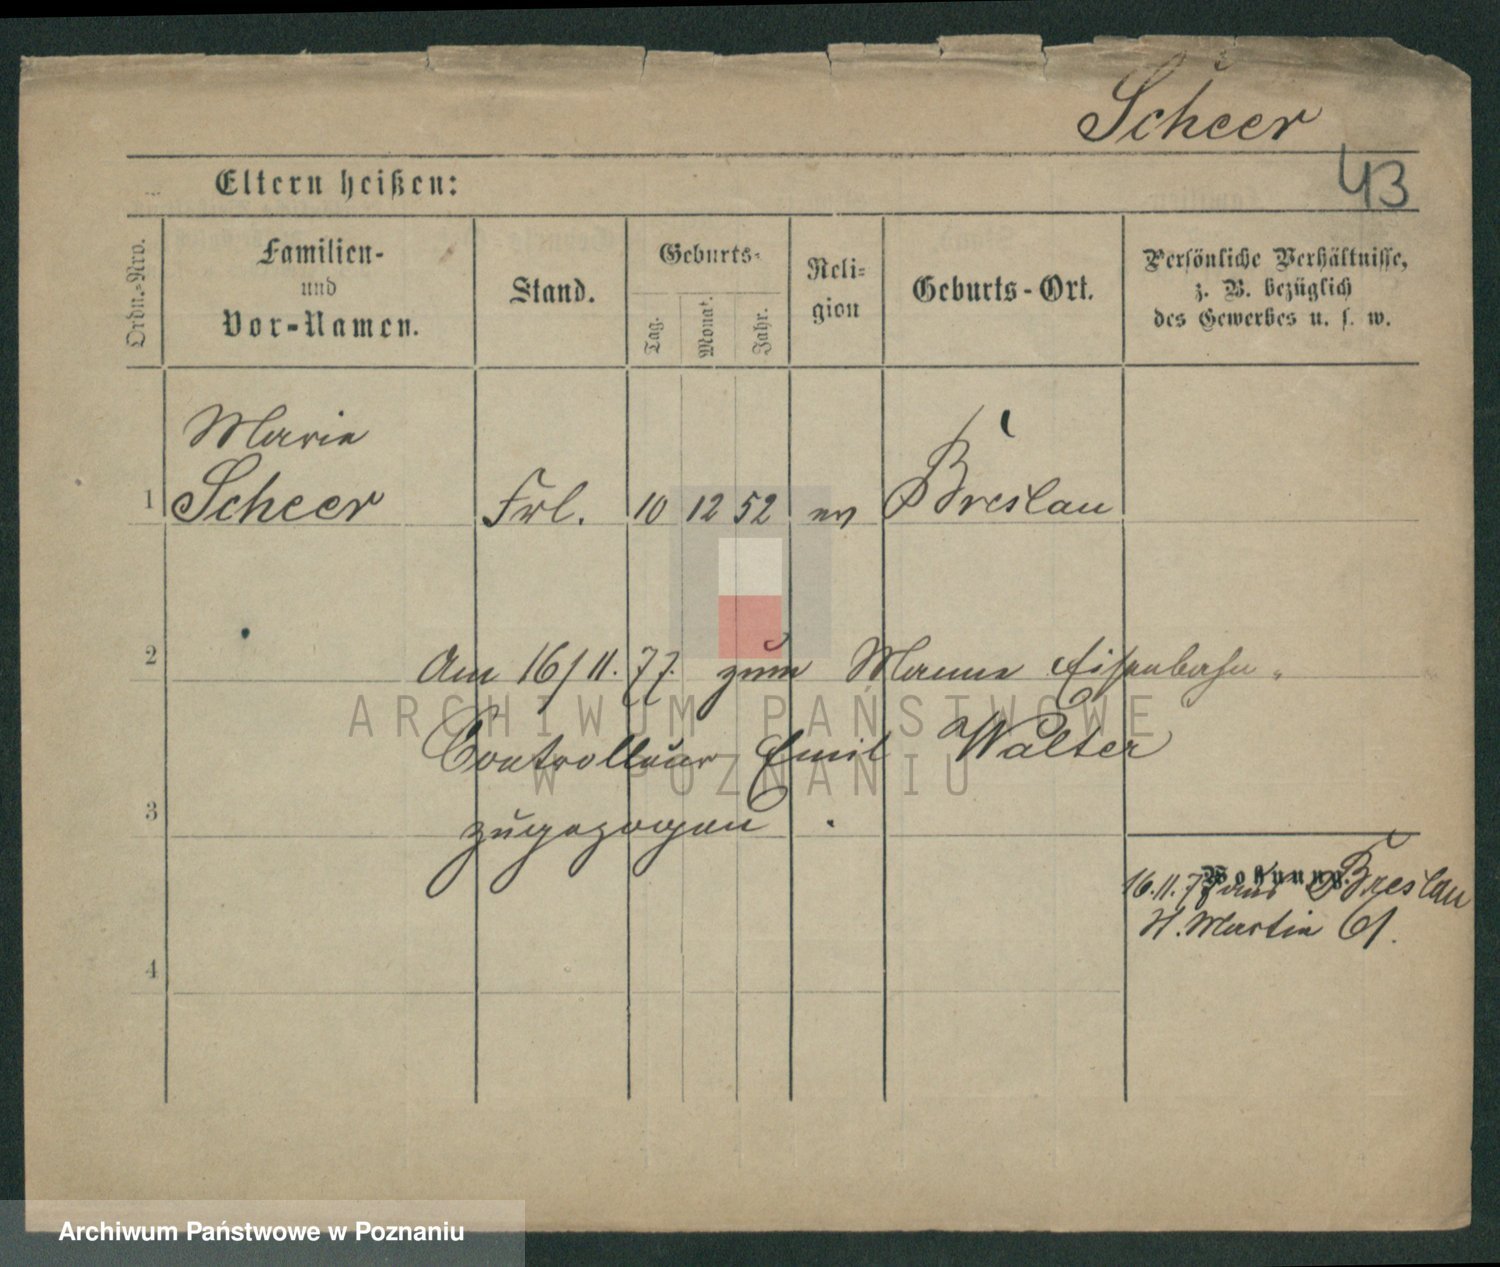 Scheer
43
Eltern heißen:
Ordn.-Nro.
Familien-
und
Vor-Namen.
Stand.
Geburts-
Tag.
Monat.
Jahr.
Reli-
gion
Geburts-Ort.
Persönliche Verhältnisse,
z. B. bezüglich
des Gewerbes u. s. w.
Marie
1 Scheer Frl. 10 12 52 ev Breslau
2 Am 16/11. 77. zum Manne Eisenbahn-
Controlleur Emil Walter
3 zugezogen.
Wohnung.
16.11.77 aus Breslau
H. Martin
4
ARCHIWUM PAŃSTWOWE
W POZNANIU
Archiwum Państwowe w Poznaniu